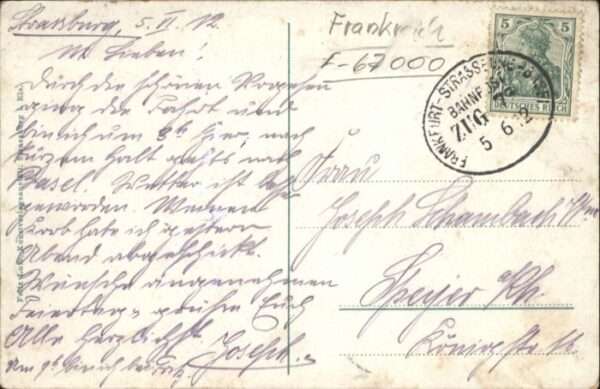 Strassburg, 5. VI. 12
M. Lieben!
Durch die schönen Vogesen
ging die Fahrt und
bin ich um 8h hier, nach
kurzem Halt gehts nach
Basel. Wetter ist
geworden. Meinen
Korb habe ich gestern
Abend abgeschickt.
Wünsche angenehmen
Feiertag u grüße Euch
Alle herzlichst
Joseph.
Frankreich
F-67000
5 5
DEUTSCHES REICH
FRANKFURT-STRASSBURG
BAHNPOST
ZUG
5 6 12
Frau
Joseph Schambach
Speyer a/Rh.
Königstr.